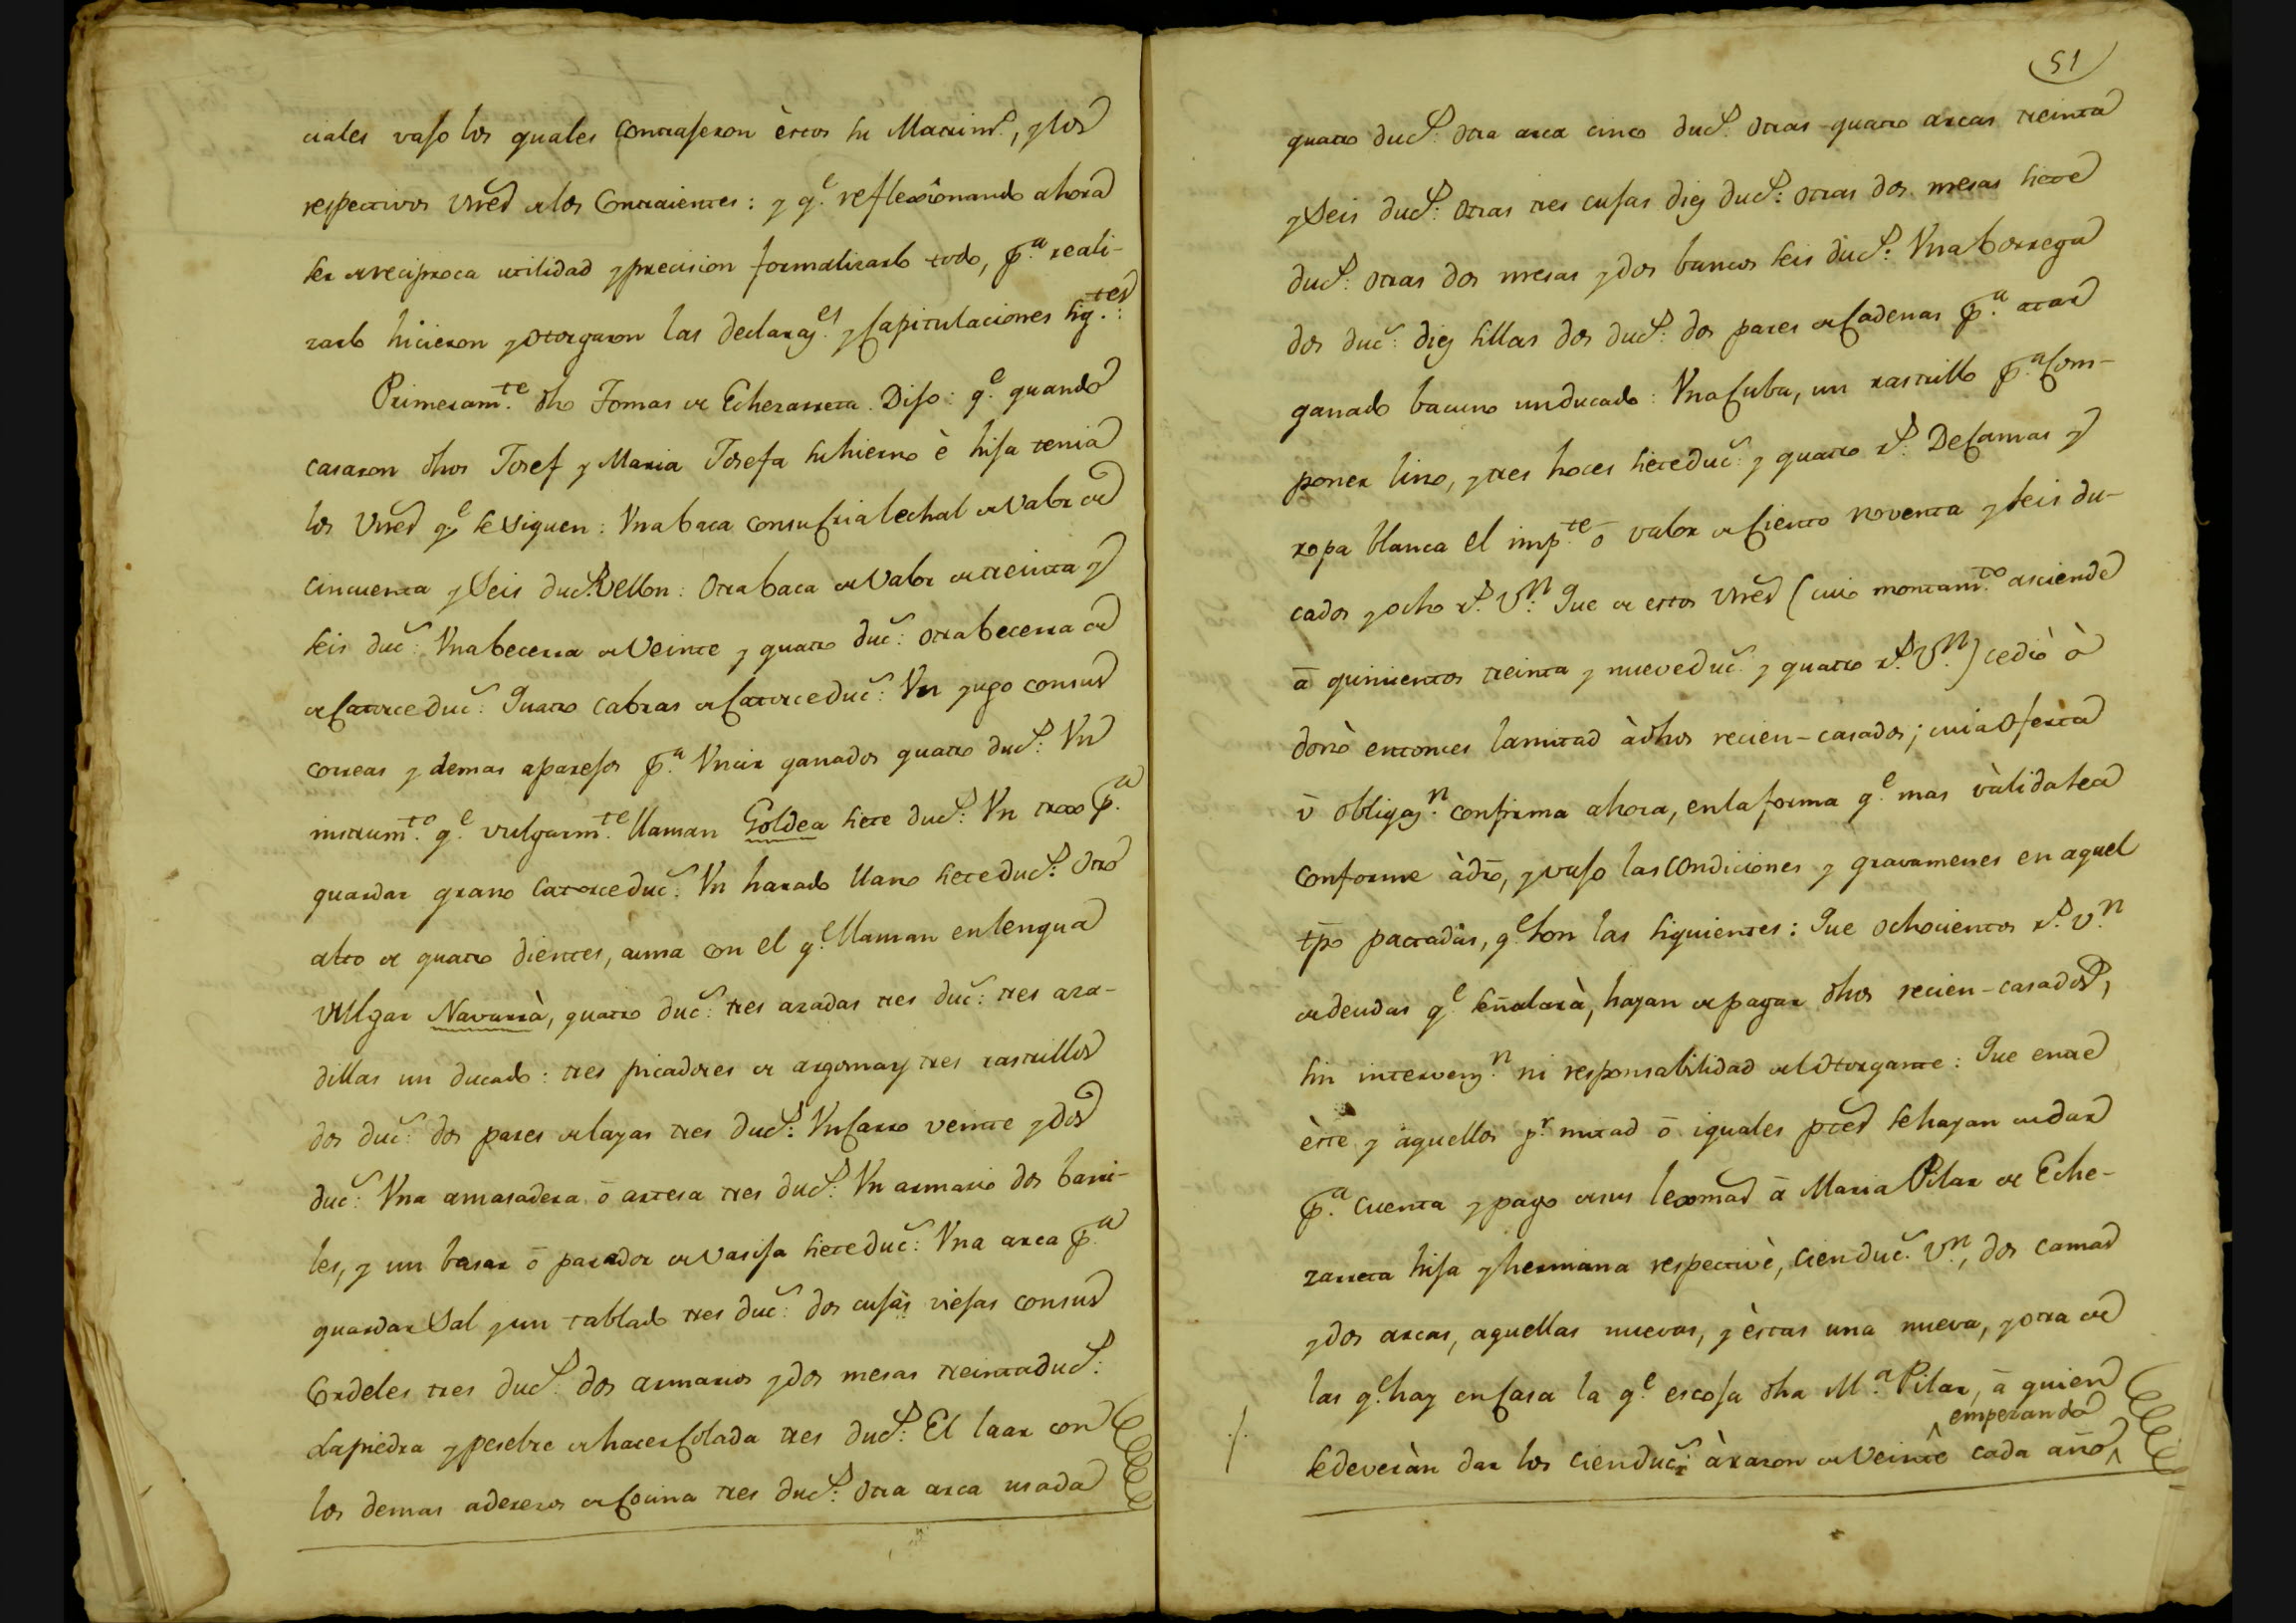 ciales vajo los quales contrajeron èstos su Matrimº., y los
respectivos vnes de los Contraientes: y qe. reflexîonando ahora
ser de reciproca utilidad y precision formalisarlo todo, pa. reali-
zarlo hicieron y otorgaron las declarazes. y Capitulaciones sigtes.:
Primeramte. dho Tomas de Echezarreta. Dijo: qe. quando
casaron dhos Josef y Maria Josefa su hierno è hija tenia
los vnes qe. se siguen: Vna baca con su Cria lechal de valor de
cincuenta y seis ducs. vellon: Otra baca de valor de treinta y
seis duc: Vna becerra de veinte y quatro duc: otra becerra de
de Catorce duc: Quatro cabras de Catorce duc: Vn yugo con sus
correas y demas aparejos pa. Vncir ganados quatro ducs: Vn
instrumto. qe. vulgarmte. llaman Goldea siete ducs: Vn troxo pa.
guardar grano Catorce duc: Vn harado llano siete ducs: Otro
alto de quatro dientes, arma con el qe. llaman en lengua
vulgar Navarrà, quatro duc: tres azadas tres duc: tres aza-
dillas un ducado: tres picadores de argoma y tres rastrillos
dos duc: dos pares de layas tres ducs: Vn Carro veinte y dos
duc: Vna amasadera ō artesa tres ducs: Vn armario dos barri-
les, y un basar ō parador de vasija siete duc: Vna arca pa.
guardar sal y un tablado tres duc: dos cujàs viejas con sus
Cordeles tres ducs: dos armarios y dos mesas treinta ducs:
La piedra y pesebre de hacer Colada tres ducs: El laar con
los demas aderezos de Cocina tres ducs: Otra arca usada
51
quatro ducs: otra arca cinco ducs: otras quatro arcas treinta
y seis ducs: otras tres cujas diez ducs: otras dos mesas siete
ducs: otras dos mesas y dos bancos seis ducs: Vna borrega
dos duc: diez sillas dos ducs: dos pares de Cadenas pa. atar
ganado bacuno un ducado: Vna Cuba, un rastrillo pa. Com-
poner lino, y tres hoces siete duc: y quatro rs. De Camas y
ropa blanca el impte. ō valor de Ciento noventa y seis du-
cados y ocho rs. vn: Que de estos vnes (cuio montamto. asciende
ā quinientos treinta y nueve duc. y quatro rs. vn) cediò ò
donò entonces la mitad à dhos recien-casados; cuia oferta
ū obligazn. confirma ahora, en la forma qe. mas vàlida sea
conforme à dro, y vajo las condiciones y gravamenes en aquel
tpo pactadas, qe. son las siguientes: Que ochocientos rs. vn
de deudas qe. señalarà, hayan de pagar dhos recien-casados,
sin intervenzn. ni responsabilidad del otorgante: Que entre
èste y aquellos pr. mitad ō iguales ptes se hayan de dar
pa. cuenta y pago de sus lexmas ā Maria Pilar de Eche-
zarreta hija y hermana respectivè, cien duc. vn., dos camas
y dos arcas, aquellas nuevas, y èstas una nueva, y otra de
las qe. hay en Casa la qe. escoja dha Ma. Pilar, ā quien
empezando
se deveràn dar los cien duc: à razon de veinte cada año,